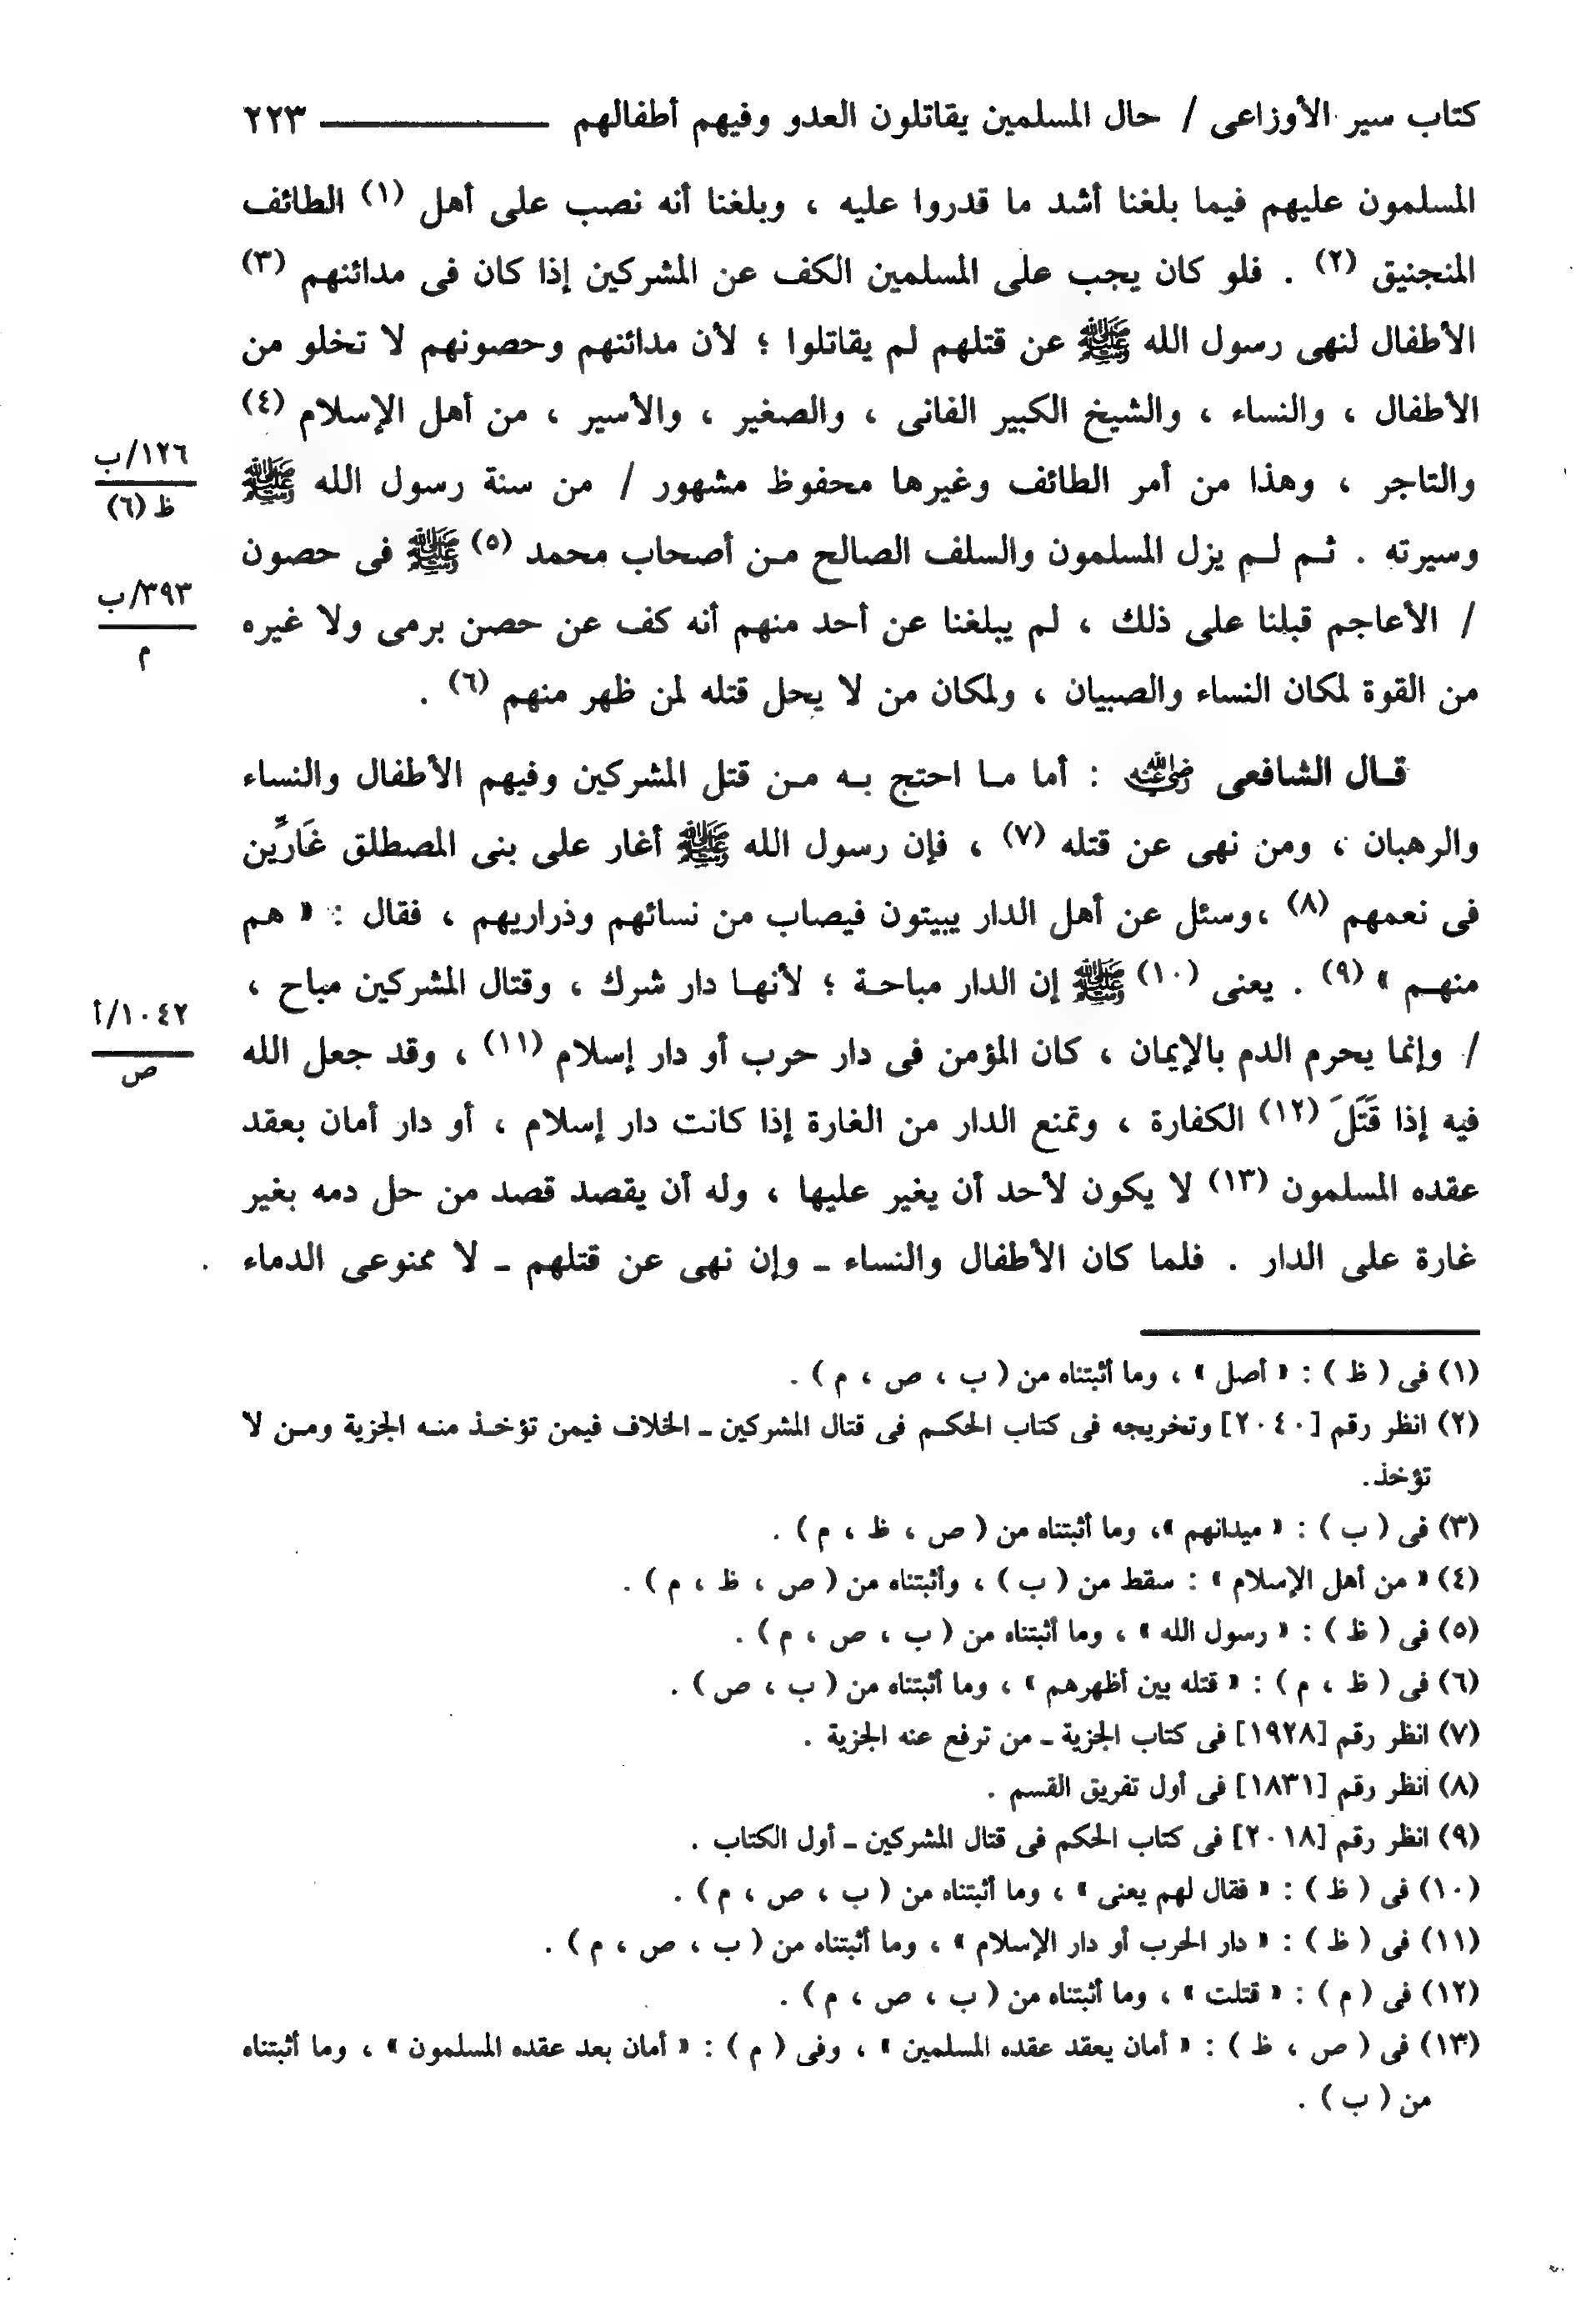 كتاب سير الأوزاعى / حال المسلمين يقاتلون العدو وفيهم أطفالهم ــــــــــ ٢٢٣
المسلمون عليهم فيما بلغنا أشد ما قدروا عليه ، وبلغنا أنه نصب على أهل (١) الطائف
المنجنيق (٢) . فلو كان يجب على المسلمين الكف عن المشركين إذا كان فى مدائنهم (٣)
الأطفال لنهى رسول الله ﷺ عن قتلهم لم يقاتلوا ؛ لأن مدائنهم وحصونهم لا تخلو من
الأطفال ، والنساء ، والشيخ الكبير الفانى ، والصغير ، والأسير ، من أهل الإسلام (٤)
والتاجر ، وهذا من أمر الطائف وغيرها محفوظ مشهور / من سنة رسول الله ﷺ
١٢٦/ب
ظ (٦)
وسيرته . ثم لم يزل المسلمون والسلف الصالح من أصحاب محمد (٥) ﷺ فى حصون
/ الأعاجم قبلنا على ذلك ، لم يبلغنا عن أحد منهم أنه كف عن حصن برمى ولا غيره
٣٩٣/ب
م
من القوة لمكان النساء والصبيان ، ولمكان من لا يحل قتله لمن ظهر منهم (٦) .
قال الشافعى رضي الله عنه : أما ما احتج به من قتل المشركين وفيهم الأطفال والنساء
والرهبان ، ومن نهى عن قتله (٧) ، فإن رسول الله ﷺ أغار على بنى المصطلق غَارِّين
فى نعمهم (٨) ،وسئل عن أهل الدار يبيتون فيصاب من نسائهم وذراريهم ، فقال : « هم
منهم » (٩) . يعنى (١٠) ﷺ إن الدار مباحة ؛ لأنها دار شرك ، وقتال المشركين مباح ،
/ وإنما يحرم الدم بالإيمان ، كان المؤمن فى دار حرب أو دار إسلام (١١) ، وقد جعل الله
١٠٤٢/أ
ص
فيه إذا قَتَلَ (١٢) الكفارة ، وتمنع الدار من الغارة إذا كانت دار إسلام ، أو دار أمان بعقد
عقده المسلمون (١٣) لا يكون لأحد أن يغير عليها ، وله أن يقصد قصد من حل دمه بغير
غارة على الدار . فلما كان الأطفال والنساء ـ وإن نهى عن قتلهم ـ لا ممنوعى الدماء
(١) فى ( ظ ) : « أصل » ، وما أثبتناه من ( ب ، ص ، م ) .
(٢) انظر رقم [٢٠٤٠] وتخريجه فى كتاب الحكم فى قتال المشركين ـ الخلاف فيمن تؤخذ منه الجزية ومن لا
تؤخذ.
(٣) فى ( ب ) : « ميدانهم »، وما أثبتناه من ( ص ، ظ ، م ) .
(٤) « من أهل الإسلام » : سقط من ( ب ) ، وأثبتناه من ( ص ، ظ ، م ) .
(٥) فى ( ظ ) : « رسول الله » ، وما أثبتناه من ( ب ، ص ، م ) .
(٦) فى ( ظ ، م ) : « قتله بين أظهرهم » ، وما أثبتناه من ( ب ، ص ) .
(٧) انظر رقم [١٩٢٨] فى كتاب الجزية ـ من ترفع عنه الجزية .
(٨) انظر رقم [١٨٣١] فى أول تفريق القسم .
(٩) انظر رقم [٢٠١٨] فى كتاب الحكم فى قتال المشركين ـ أول الكتاب .
(١٠) فى ( ظ ) : « فقال لهم يعنى » ، وما أثبتناه من ( ب ، ص ، م ) .
(١١) فى ( ظ ) : « دار الحرب أو دار الإسلام » ، وما أثبتناه من ( ب ، ص ، م ) .
(١٢) فى ( م ) : « قتلت » ، وما أثبتناه من ( ب ، ص ، م ) .
(١٣) فى ( ص ، ظ ) : « أمان يعقد عقده المسلمين » ، وفى ( م ) : « أمان بعد عقده المسلمون » ، وما أثبتناه
من ( ب ) .